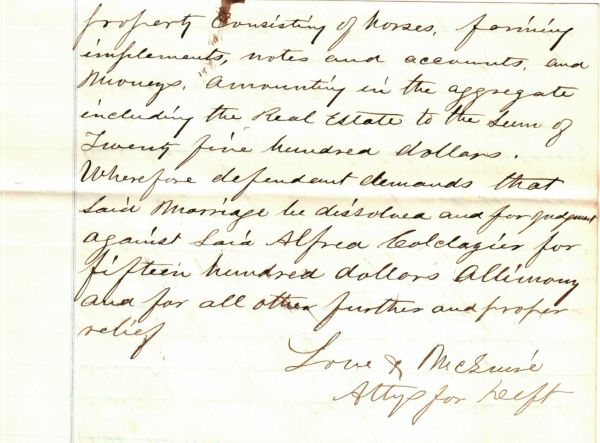 property Consisting of Horses, farming
implements, notes and accounts, and
Moneys. Amounting in the aggregate
including the Real Estate to the Sum of
Twenty five hundred dollars.
Wherefore defendant demands that
Said Marriage be dissolved and for judgment
against Said Alfred Colclazier for
fifteen hundred dollars Allimony
and for all other further and proper
relief
Love & McGuire
Attys for Deft